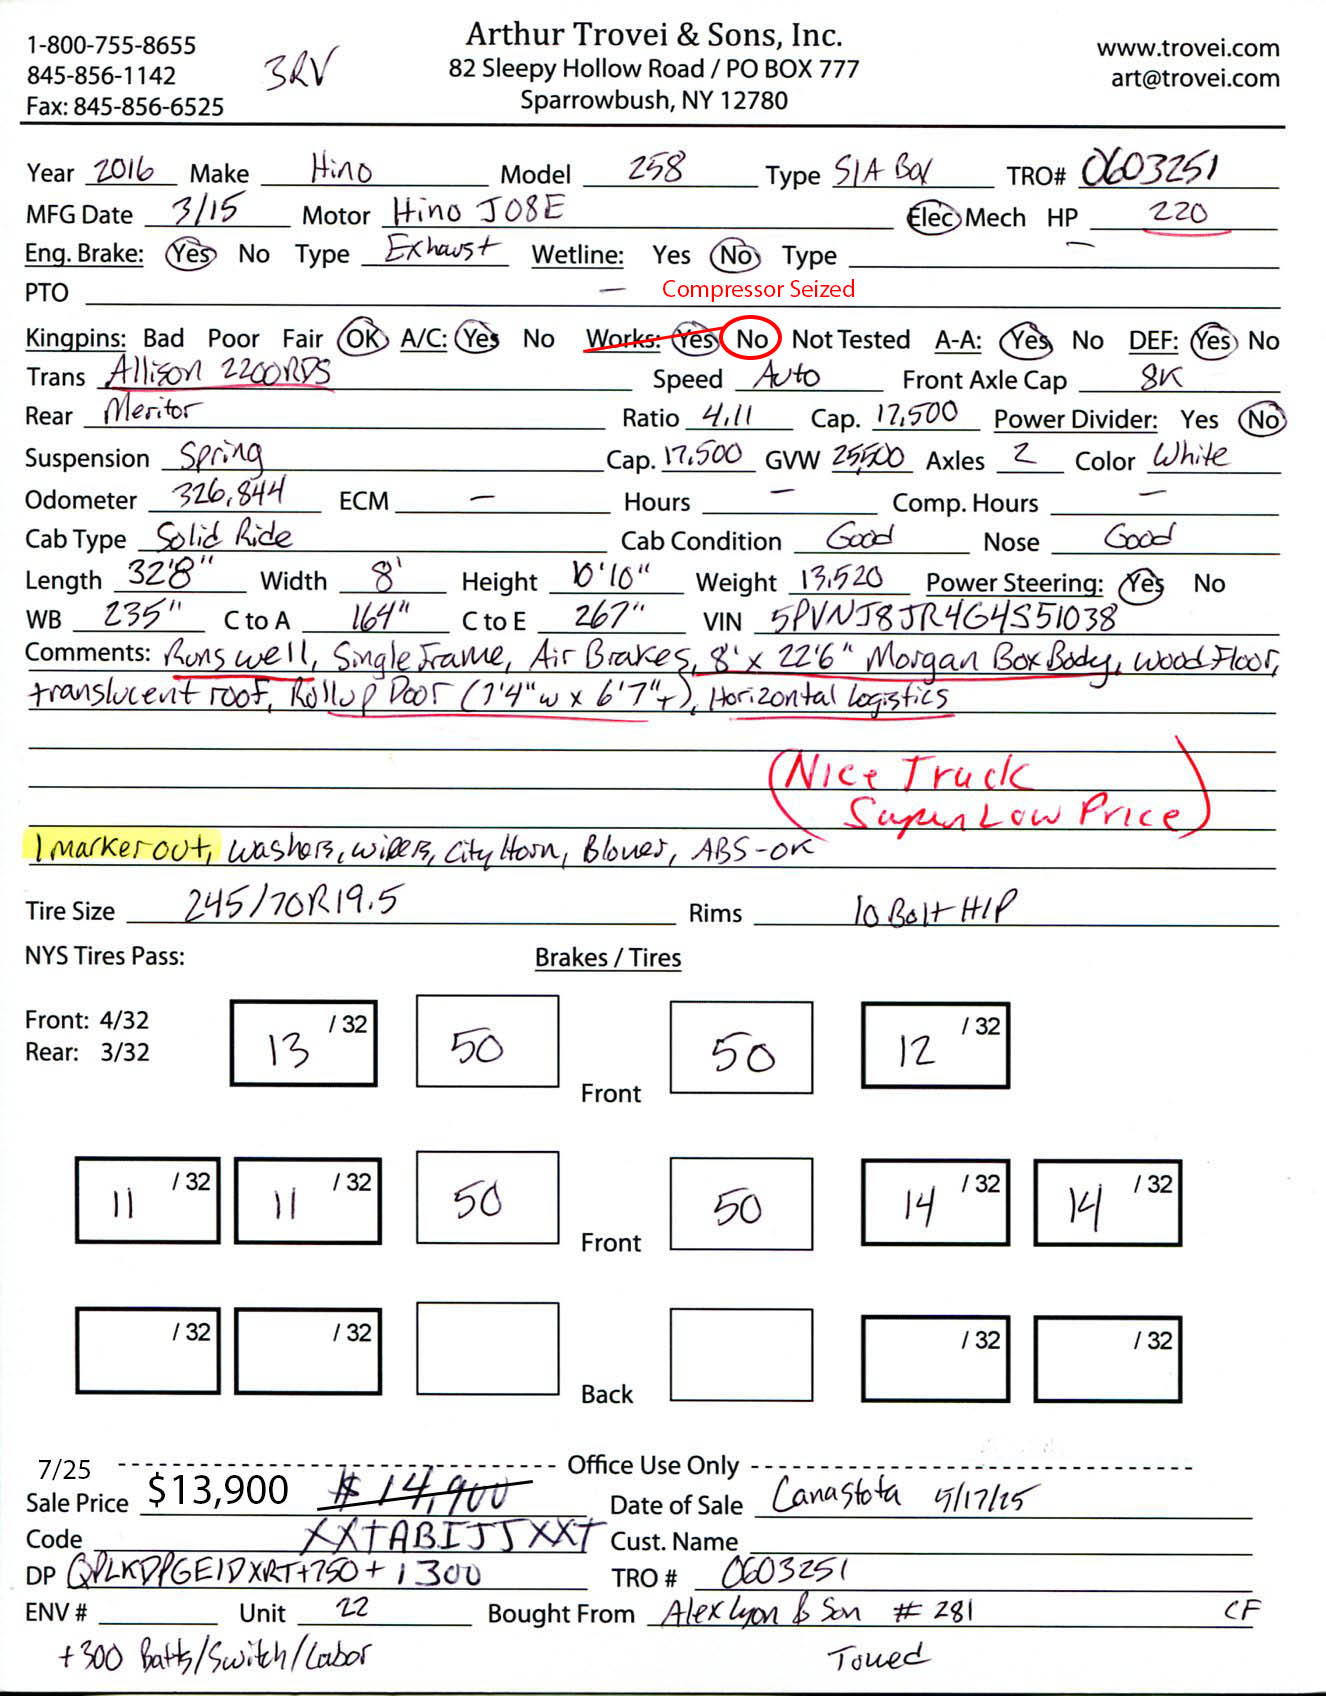 1-800-755-8655
845-856-1142
Fax: 845-856-6525
3RV
Arthur Trovei & Sons, Inc.
82 Sleepy Hollow Road / PO BOX 777
Sparrowbush, NY 12780
www.trovei.com
art@trovei.com
Year 2016 Make Hino Model 258 Type S/A Box TRO# 0603251
MFG Date 3/15 Motor Hino J08E Elec Mech HP 220
Eng. Brake: Yes No Type Exhaust Wetline: Yes No Type —
PTO — Compressor Seized
Kingpins: Bad Poor Fair OK A/C: Yes No Works: Yes No Not Tested A-A: Yes No DEF: Yes No
Trans Allison 2200RDS Speed Auto Front Axle Cap 8K
Rear Meritor Ratio 4.11 Cap. 17,500 Power Divider: Yes No
Suspension Spring Cap. 17,500 GVW 25,500 Axles 2 Color White
Odometer 326,844 ECM — Hours — Comp. Hours —
Cab Type Solid Ride Cab Condition Good Nose Good
Length 32'8" Width 8' Height 10'10" Weight 13,520 Power Steering: Yes No
WB 235" C to A 164" C to E 267" VIN 5PVNJ8JR4G4S51038
Comments: Runs well, Single Frame, Air Brakes, 8' x 22'6" Morgan Box Body, Wood Floor,
translucent roof, Rollup Door (7'4"w x 6'7"+), Horizontal logistics
(Nice Truck
Super Low Price)
1 marker out, washers, wipers, City Horn, Blower, ABS-OK
Tire Size 245/70R19.5 Rims 10 Bolt H/P
NYS Tires Pass: Brakes / Tires
Front: 4/32
Rear: 3/32
13 /32 50 Front 50 12 /32
11 /32 11 /32 50 Front 50 14 /32 14 /32
/32 /32 Back /32 /32
7/25 Office Use Only
Sale Price $13,900 $14,900 Date of Sale Canastota 5/17/25
Code XXTABIJJXXT Cust. Name
DP QPLKDPGEIDXRT+750+1300 TRO # 0603251
ENV # Unit 22 Bought From Alex Lyon & Son # 281 CF
+300 Batts/Switch/Labor Towed